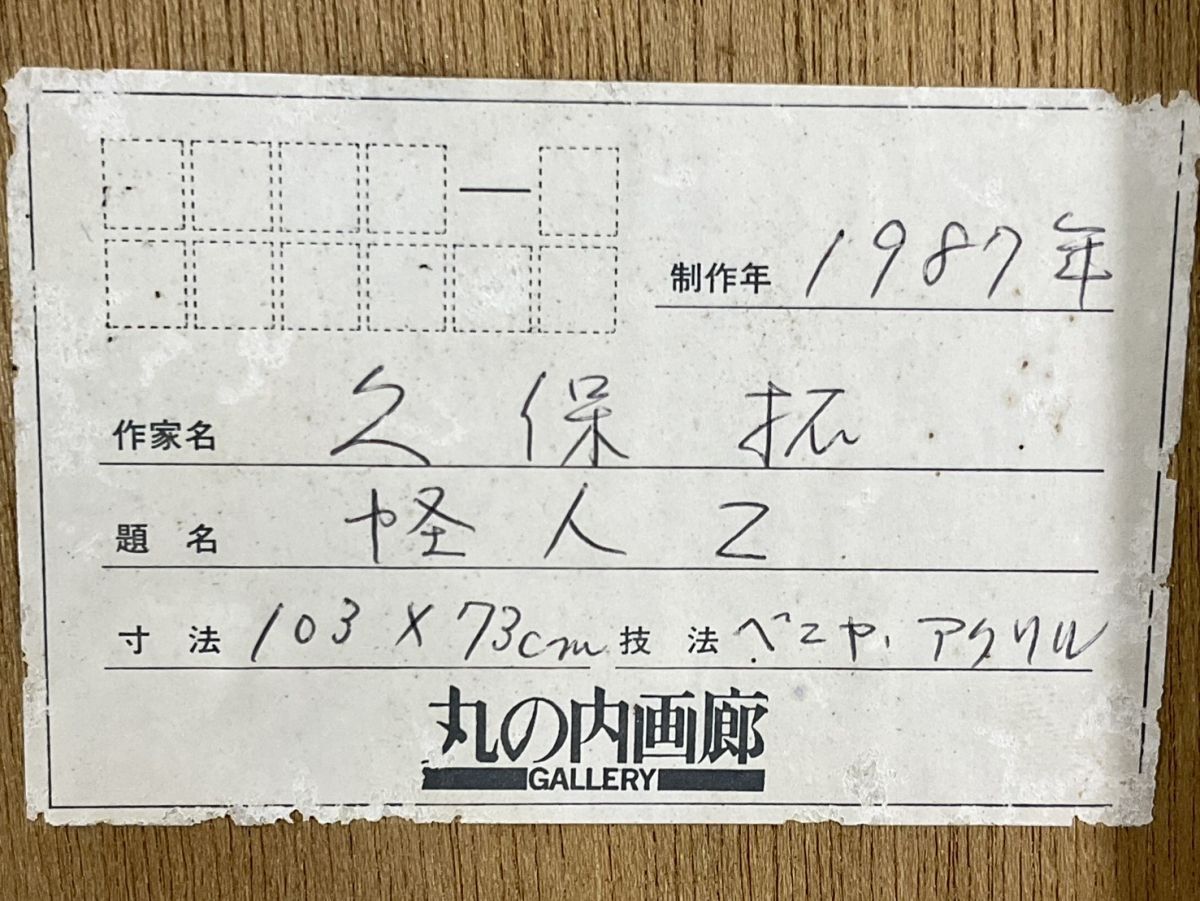 制作年 1987年
作家名 久保 拓
題名 怪人Z
寸法 103×73cm 技法 ベニヤ、アクリル
丸の内画廊
GALLERY